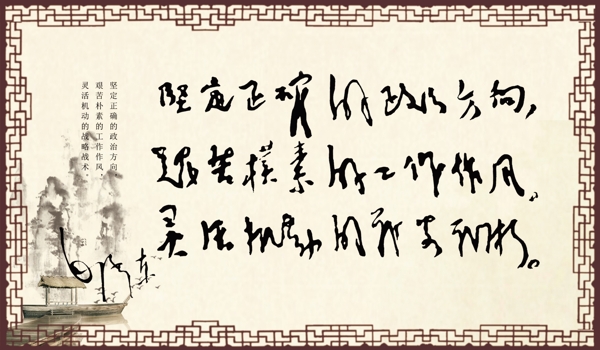 坚定正确的政治方向，
艰苦樸素的工作作风。
灵活机动的战略战术。
毛泽东
坚定正确的政治方向，
艰苦朴素的工作作风，
灵活机动的战略战术